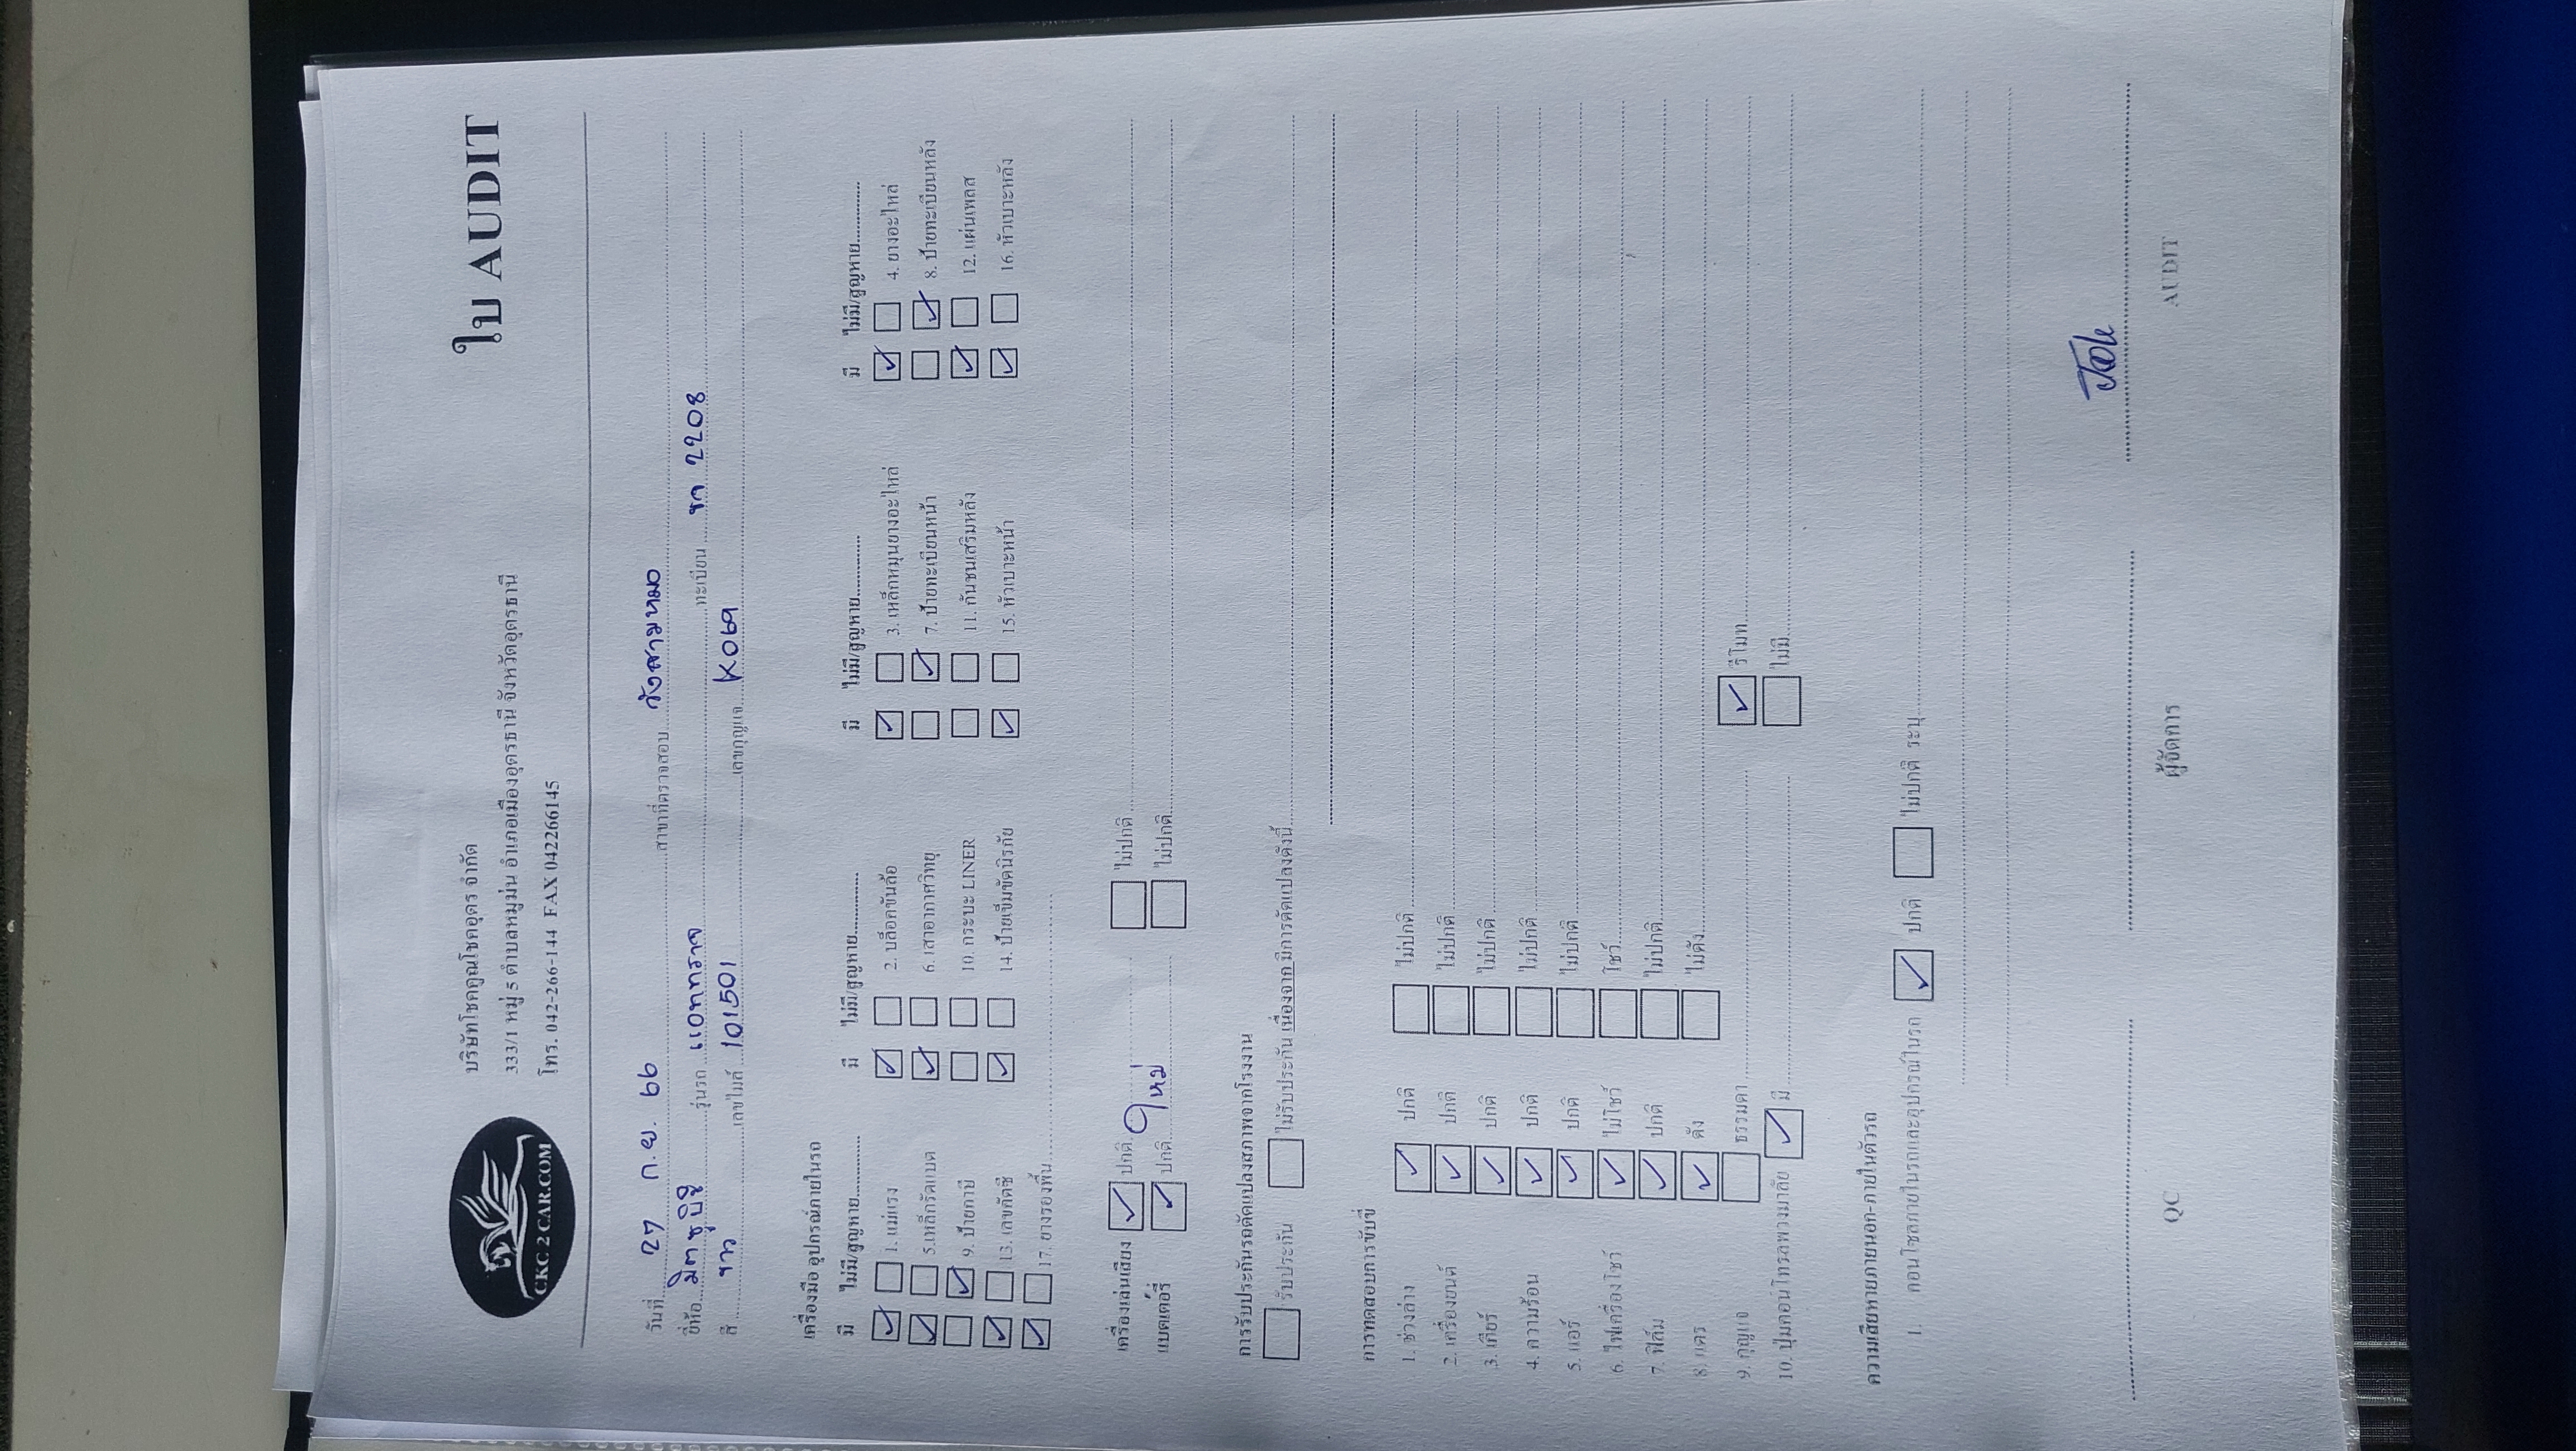 CKC 2 CAR.COM
บริษัทโชคคูณโชคอุดร จำกัด
ใบ AUDIT
333/1 หมู่ 5 ตำบลหมูม่น อำเภอเมืองอุดรธานี จังหวัดอุดรธานี
โทร. 042-266-144 FAX 042266145
วันที่ 27 ก.ย. 66 สาขาที่ตรวจสอบ วังสามหมอ
ยี่ห้อ มิตซูบิชิ รุ่นรถ แอททราจ ทะเบียน ขก 2208
สี ขาว เลขไมล์ 101501 เลขกุญแจ K069
เครื่องมือ อุปกรณ์ภายในรถ
มี ไม่มี/สูญหาย มี ไม่มี/สูญหาย มี ไม่มี/สูญหาย มี ไม่มี/สูญหาย
1. แม่แรง 2. บล็อกขันล้อ 3. เหล็กหมุนยางอะไหล่ 4. ยางอะไหล่
5. เหล็กรัดแบต 6. เสาอากาศวิทยุ 7. ป้ายทะเบียนหน้า 8. ป้ายทะเบียนหลัง
9. ป้ายภาษี 10. กระบะ LINER 11. กันชนเสริมหลัง 12. แผ่นเพลส
13. เลขคัตซี 14. ป้ายเข็มขัดนิรภัย 15. หัวเบาะหน้า 16. หัวเบาะหลัง
17. ยางรองพื้น
เครื่องเล่น/เสียง ปกติ ไม่ปกติ
แบตเตอรี่ ปกติ ใหม่ ไม่ปกติ
การรับประกันรถดัดแปลงสภาพจากโรงงาน
รับประกัน ไม่รับประกัน เนื่องจาก มีการดัดแปลงดังนี้
การทดสอบการขับขี่
1. ช่วงล่าง ปกติ ไม่ปกติ
2. เครื่องยนต์ ปกติ ไม่ปกติ
3. เกียร์ ปกติ ไม่ปกติ
4. ความร้อน ปกติ ไม่ปกติ
5. แอร์ ปกติ ไม่ปกติ
6. ไฟเครื่องโชว์ ไม่โชว์ โชว์
7. ฟิล์ม ปกติ ไม่ปกติ
8. แตร ดัง ไม่ดัง
9. กุญแจ ธรรมดา รีโมท
10. ปุ่มคอนโทรลพวงมาลัย มี ไม่มี
ความเสียหายภายนอก-ภายในตัวรถ
1. คอนโซลภายในรถและอุปกรณ์ในรถ ปกติ ไม่ปกติ ระบุ
QC ผู้จัดการ AUDIT